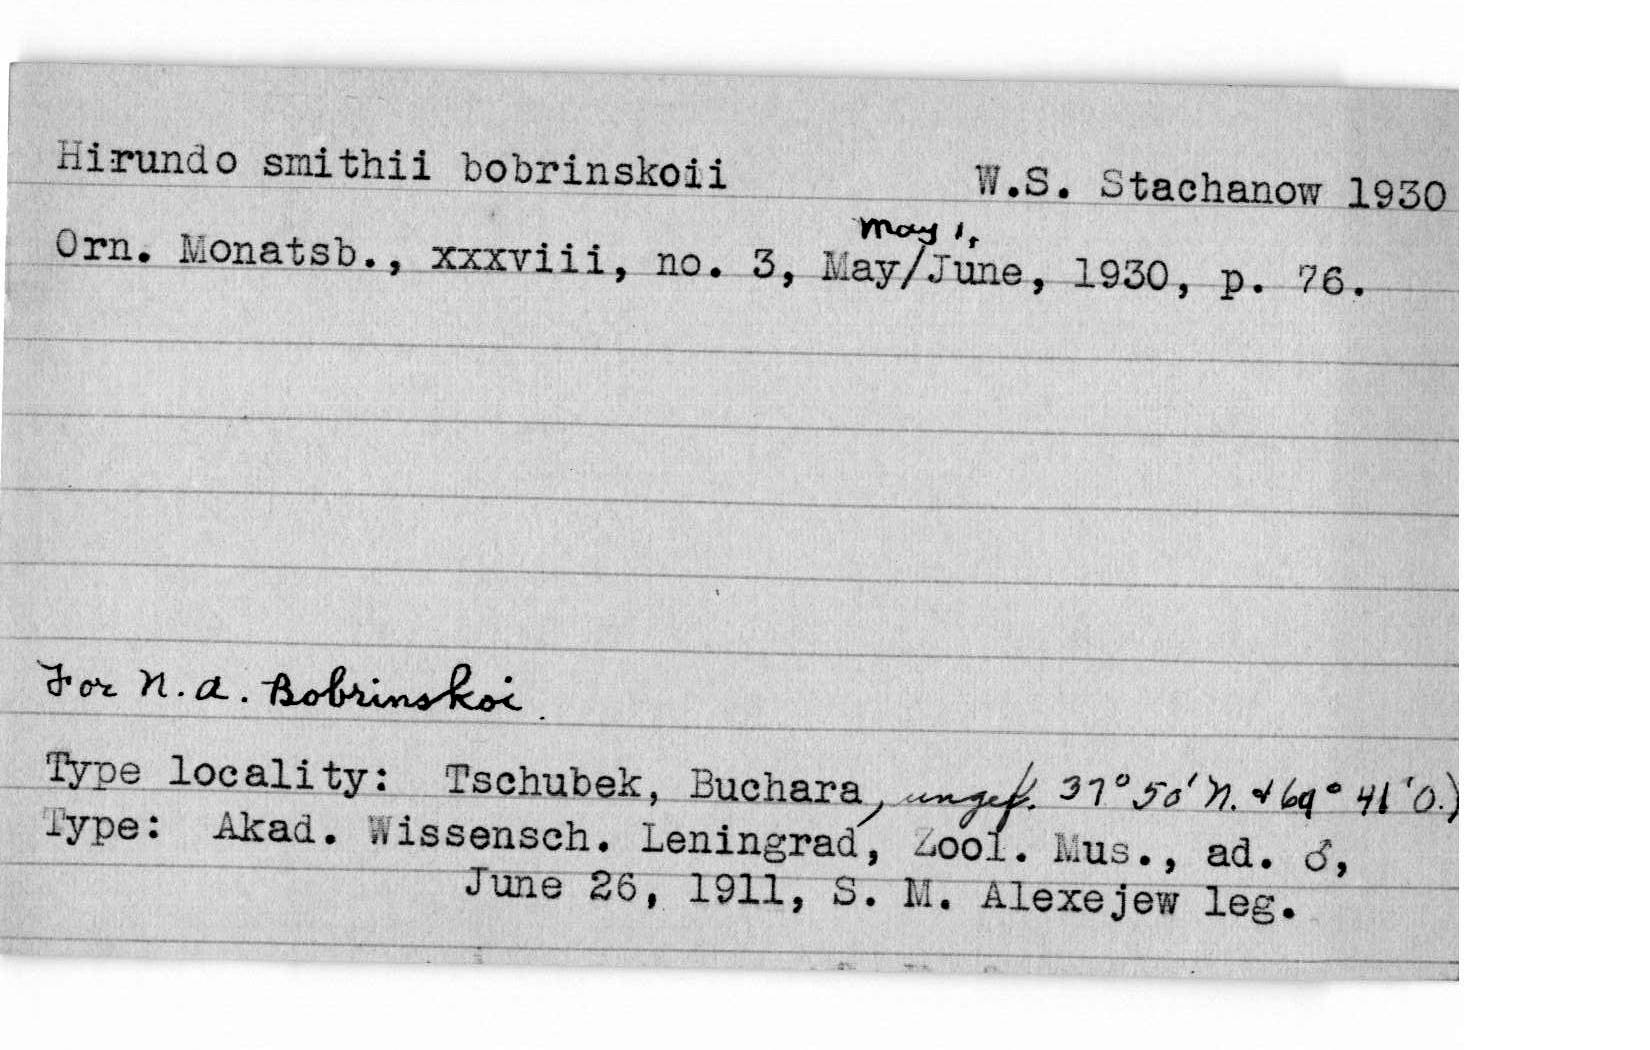 Hirundo smithii bobrinskoii W.S. Stachanow 1930
May 1,
Orn. Monatsb., xxxviii, no. 3, May/June, 1930, p. 76.
For N. A. Bobrinskoi.
Type locality: Tschubek, Buchara, ungef. 37° 50' N. & 69° 41' O.)
Type: Akad. Wissensch. Leningrad, Zool. Mus., ad. ♂,
June 26, 1911, S. M. Alexejew leg.